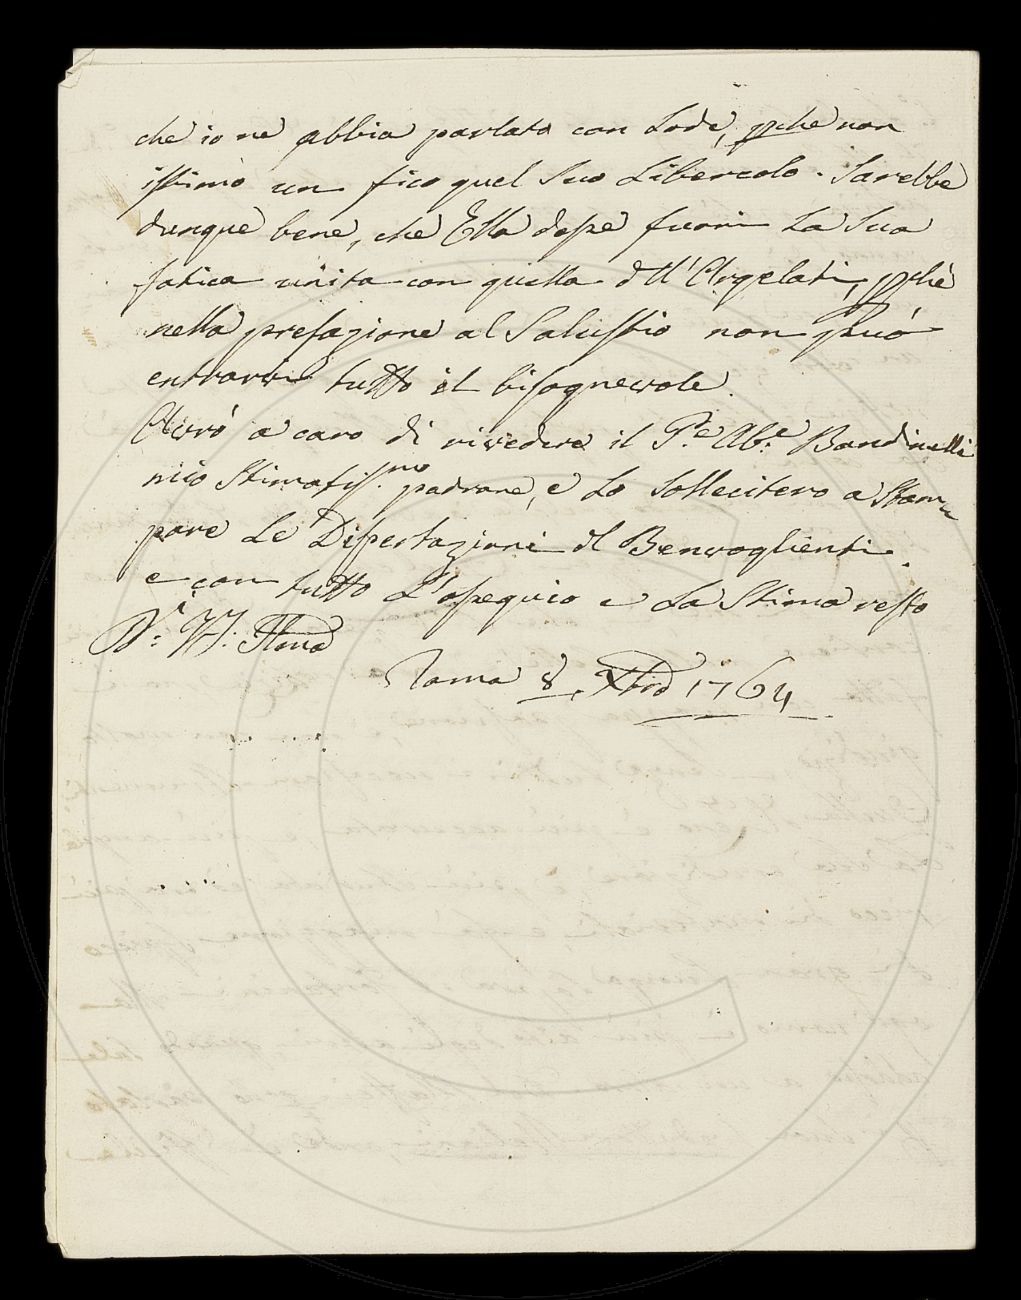 che io ne abbia parlato con Lode, pche non
istimò un fico quel suo Libercolo. Sarebbe
dunque bene, che Ella desse fuori la sua
fatica unita con quella dell'Argelati, pche
nella prefazione al Salustio non può
entrarvi tutto il bisognevole.
Avrò a caro di rivedere il P.e Ab.e Bandinelli
mio Stimatiss.mo padrone, e lo solleciterò a Stam
pare le Dissertazioni del Benvoglienti.
e con tutto l'ossequio e la Stima resto
D. V. S. Illma
Roma 8. Xbre 1764